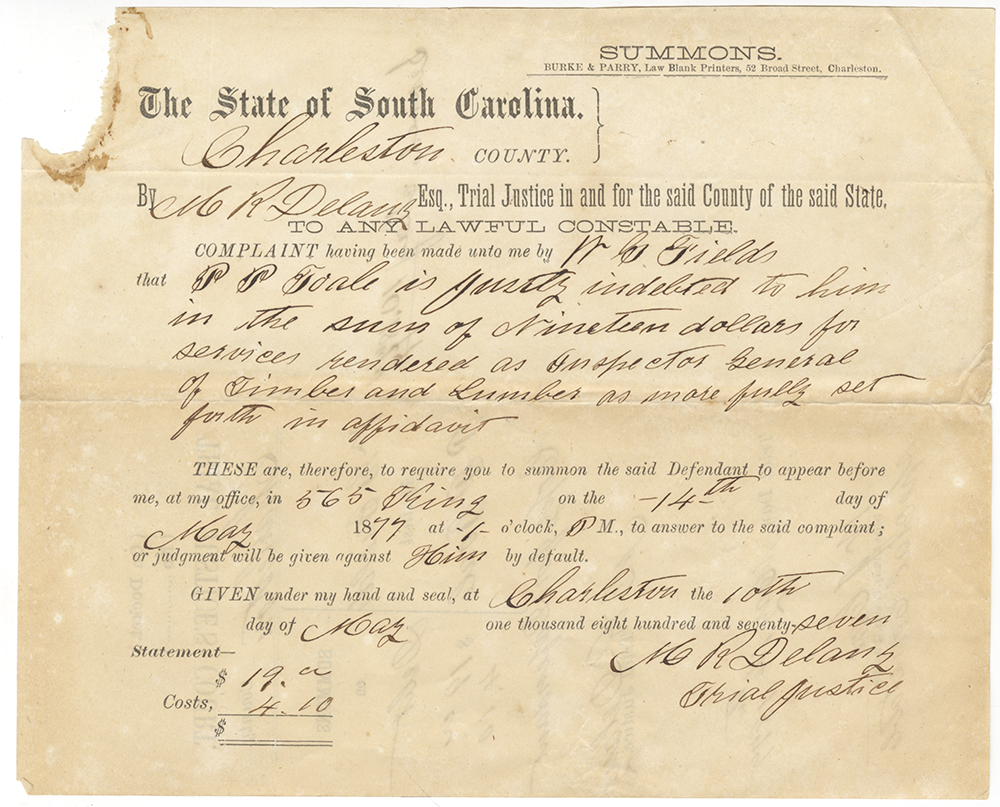 SUMMONS.
BURKE & PARRY, Law Blank Printers, 52 Broad Street, Charleston.
The State of South Carolina.
Charleston COUNTY.
By M R Delany Esq., Trial Justice in and for the said County of the said State.
TO ANY LAWFUL CONSTABLE.
COMPLAINT having been made unto me by W G Fields
that P P Toale is justly indebted to him
in the sum of Nineteen dollars for
services rendered as Inspector General
of Timber and Lumber as more fully set
forth in affidavit
THESE are, therefore, to require you to summon the said Defendant to appear before
me, at my office, in 565 King on the -14th day of
May 1877 at -1- o'clock, P M., to answer to the said complaint;
or judgment will be given against Him by default.
GIVEN under my hand and seal, at Charleston the 10th
day of May one thousand eight hundred and seventy-seven
Statement—
M R Delany
Trial Justice
$ 19.00
Costs, 4.10
$